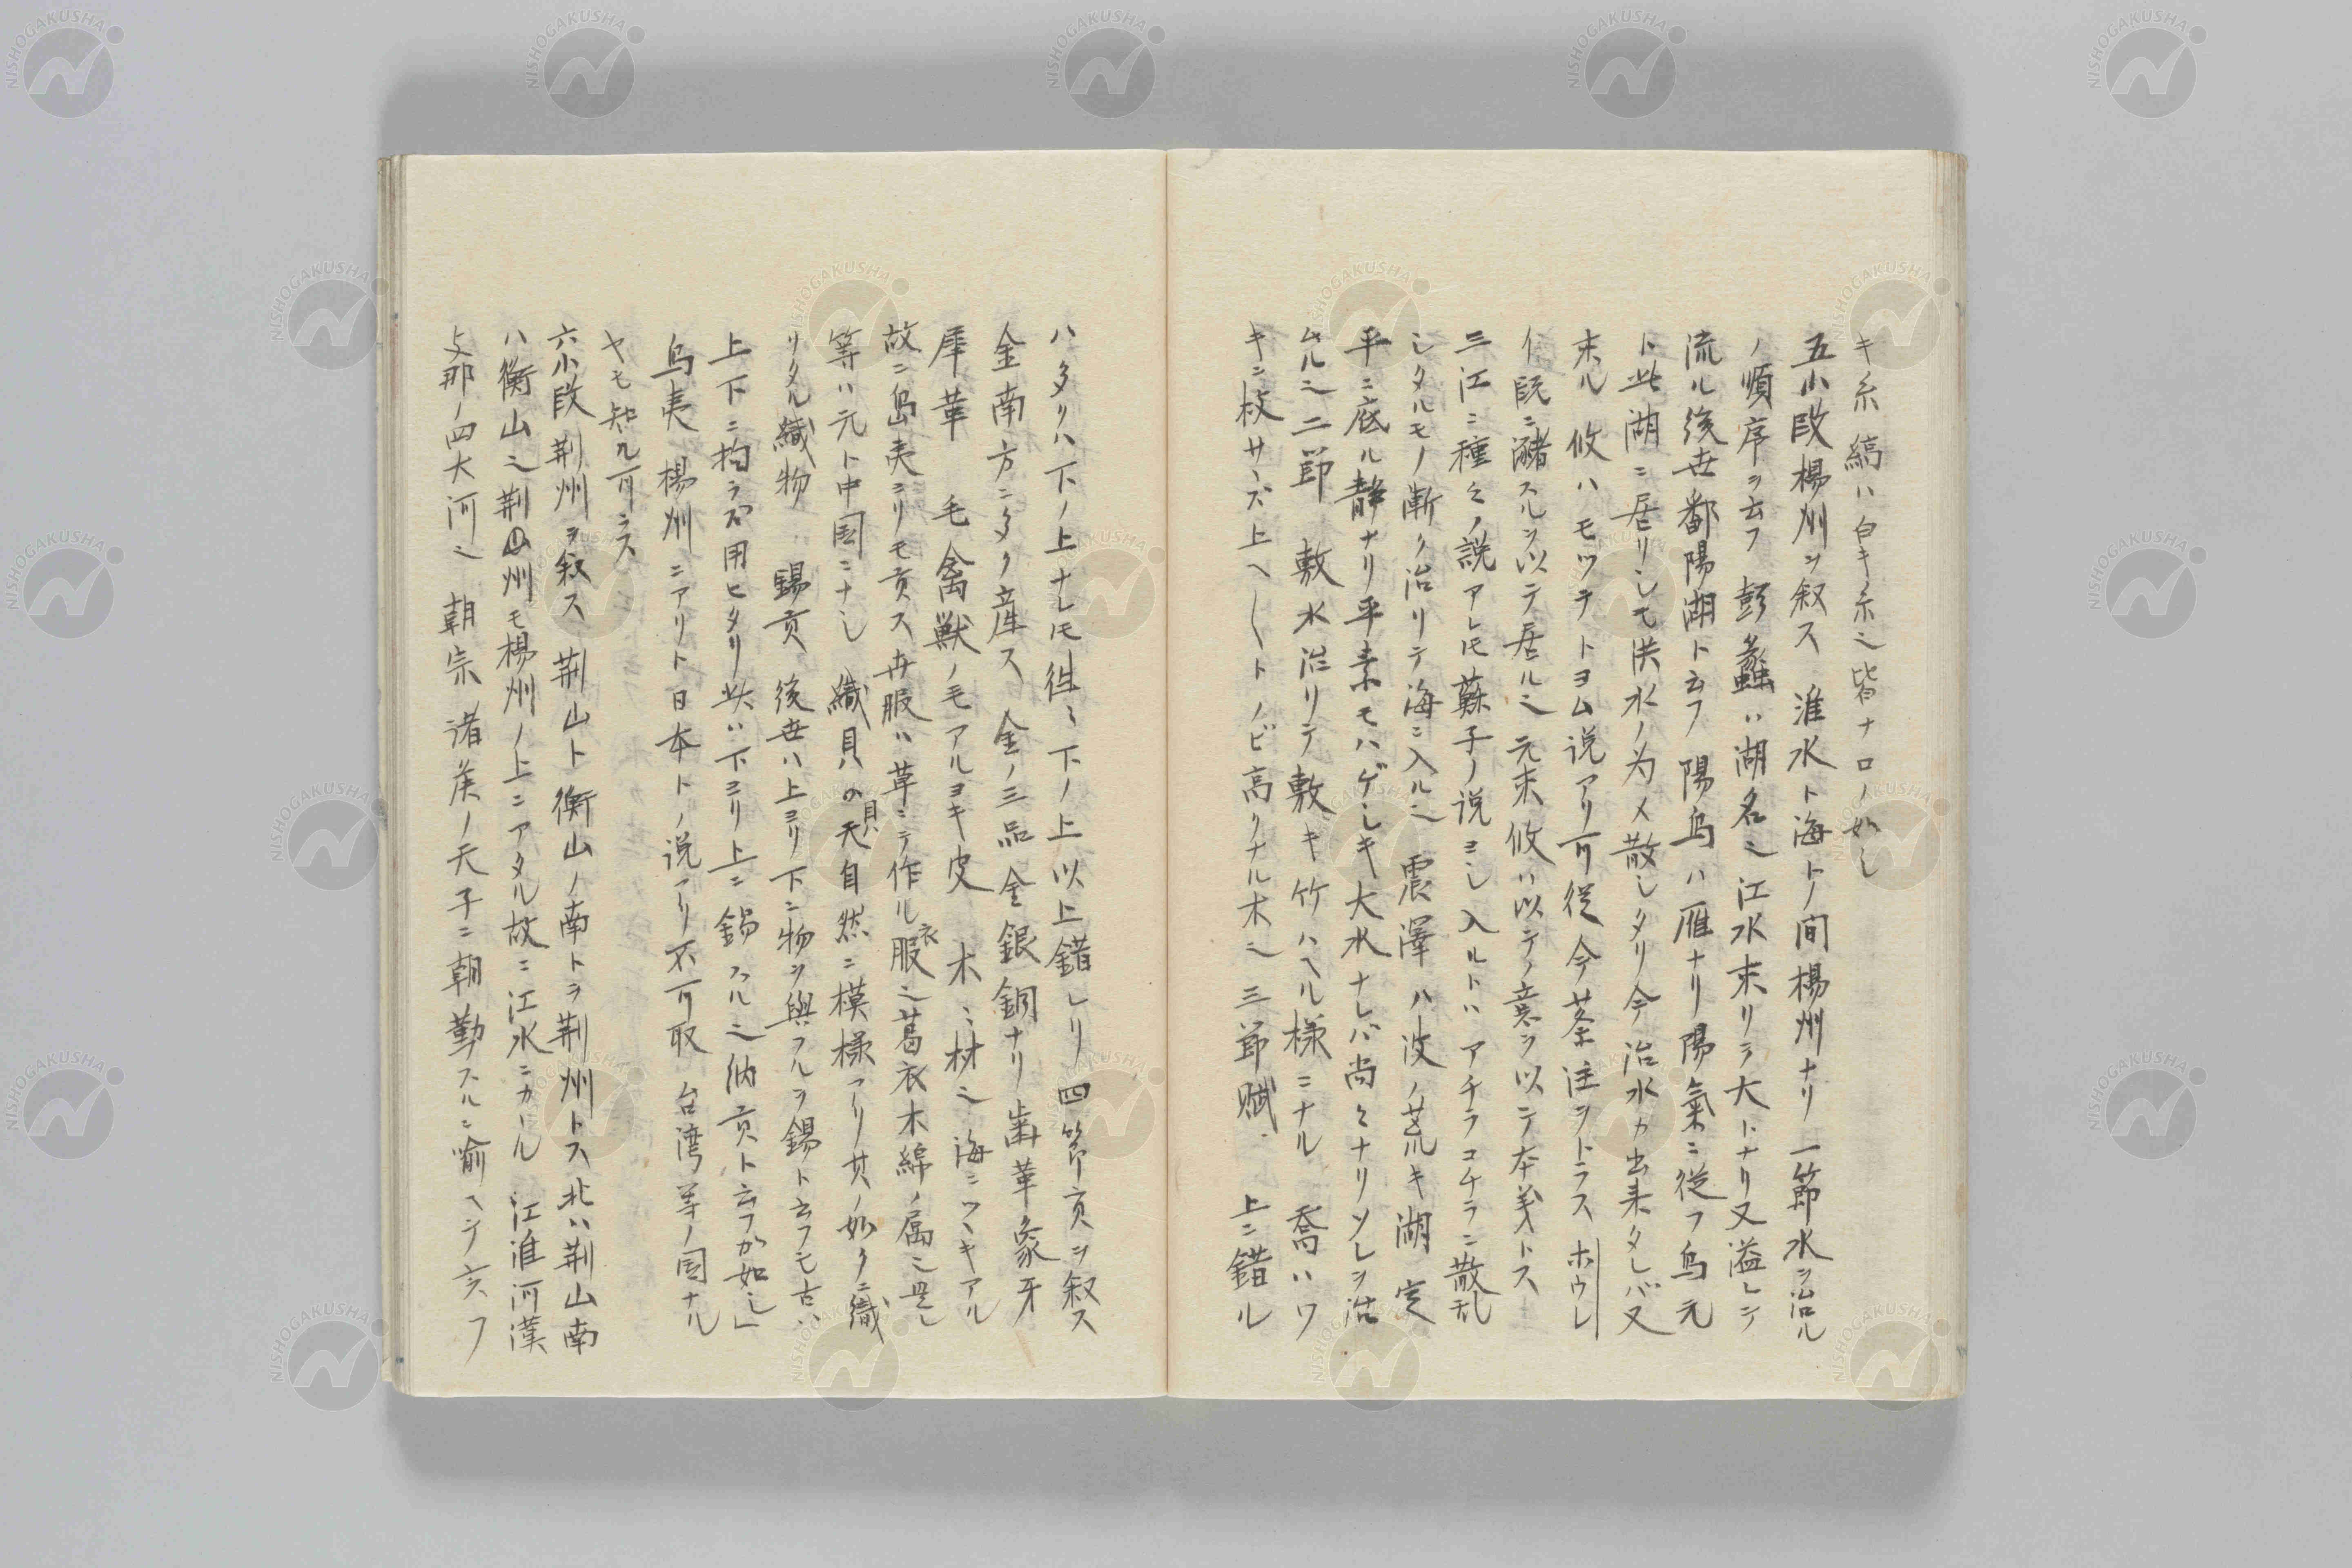 キ糸縞ハ白キ糸也皆ナロノ如し
五小段楊州ヲ叙ス 淮水ト海トノ間楊州ナリ 一節水ヲ治ル
ノ順序ヲ云フ 彭蠡ハ湖名也江水末リテ大トナリ又溢レテ
流ル後世鄱陽湖ト云フ 陽鳥ハ雁ナリ陽氣ニ從フ鳥元
ト此湖ニ居リシモ洪水ノ为メ散しタリ今治水カ出来タレバ又
末ル 攸ハモツテトヨム说アリ可從今蔡注ヲトラス
イ既ニ瀦スルヲ以テ居ル也元来攸ハ以テノ意ヲ以テ本義トス
三江ニ種々ノ説アレ𪜈蘇子ノ说ヨシ入ルトハアチラコチラニ散乱
シタルモノ漸ク治リテ海ニ入ル也 震澤ハ波ノ荒キ湖 定
平ニ底ル静ナリ平素モハゲシキ大水ナレバ尚々ナリソレヲ治
ムル也二節 敷水治リテ敷キ竹ハヘル様ニナル 喬ハワ
キニ枝サヽズ上ヘ〱トノビ高クナル木也 三節賦 上ニ錯ル
ハタリハ下ノ上ナレ𪜈徃〻下ノ上以上錯レリ 四節貢ヲ叙ス
金南方ニタク産ス 金ノ三品金銀銅ナリ 歯革象牙
犀革 毛禽獣ノ毛アルヨキ皮 木〻材也 海ニツヽキアル
故ニ島夷ヨリモ貢ス卉服ハ草ニテ作ル衣服也葛衣木綿ノ属也是し
等ハ元ト中国ニナし 織貝ハの貝ハ天自然ニ模様アリ其ノ如クニ織
リタル織物 錫貢 後世ハ上ヨリ下ニ物ヲ與フルヲ錫ト云フモ古ハ
上下ニ拘ラズ用ヒタリ此ハ下ヨリ上ニ錫フル也納貢ト云フカ如し」
鳥夷 楊州ニアリト日本トノ说アリ不可取 台湾等ノ国ナル
ヤモ知ル可ラス
六小段荆州ヲ叙ス 荆山ト衡山ノ南トヲ荆州トス北ハ荆山南
ハ衡山也荆州モ楊州ノ上ニアタル故ニ江水ニカヽル 江淮河漢
支那ノ四大河也 朝宗 渚矦ノ天子ニ朝勤スルニ喻ヘシテ云フ